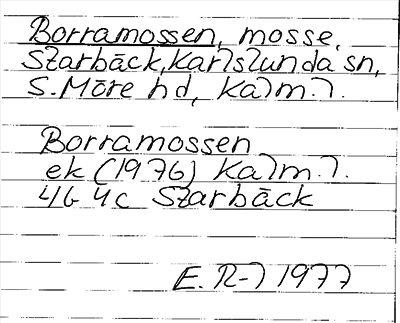 Borramossen, mosse,
Starbäck, Karlslunda sn,
S. Möre hd, Kalm. l.
Borramossen
ek (1976) Kalm. l.
4G 4c Starbäck
1977